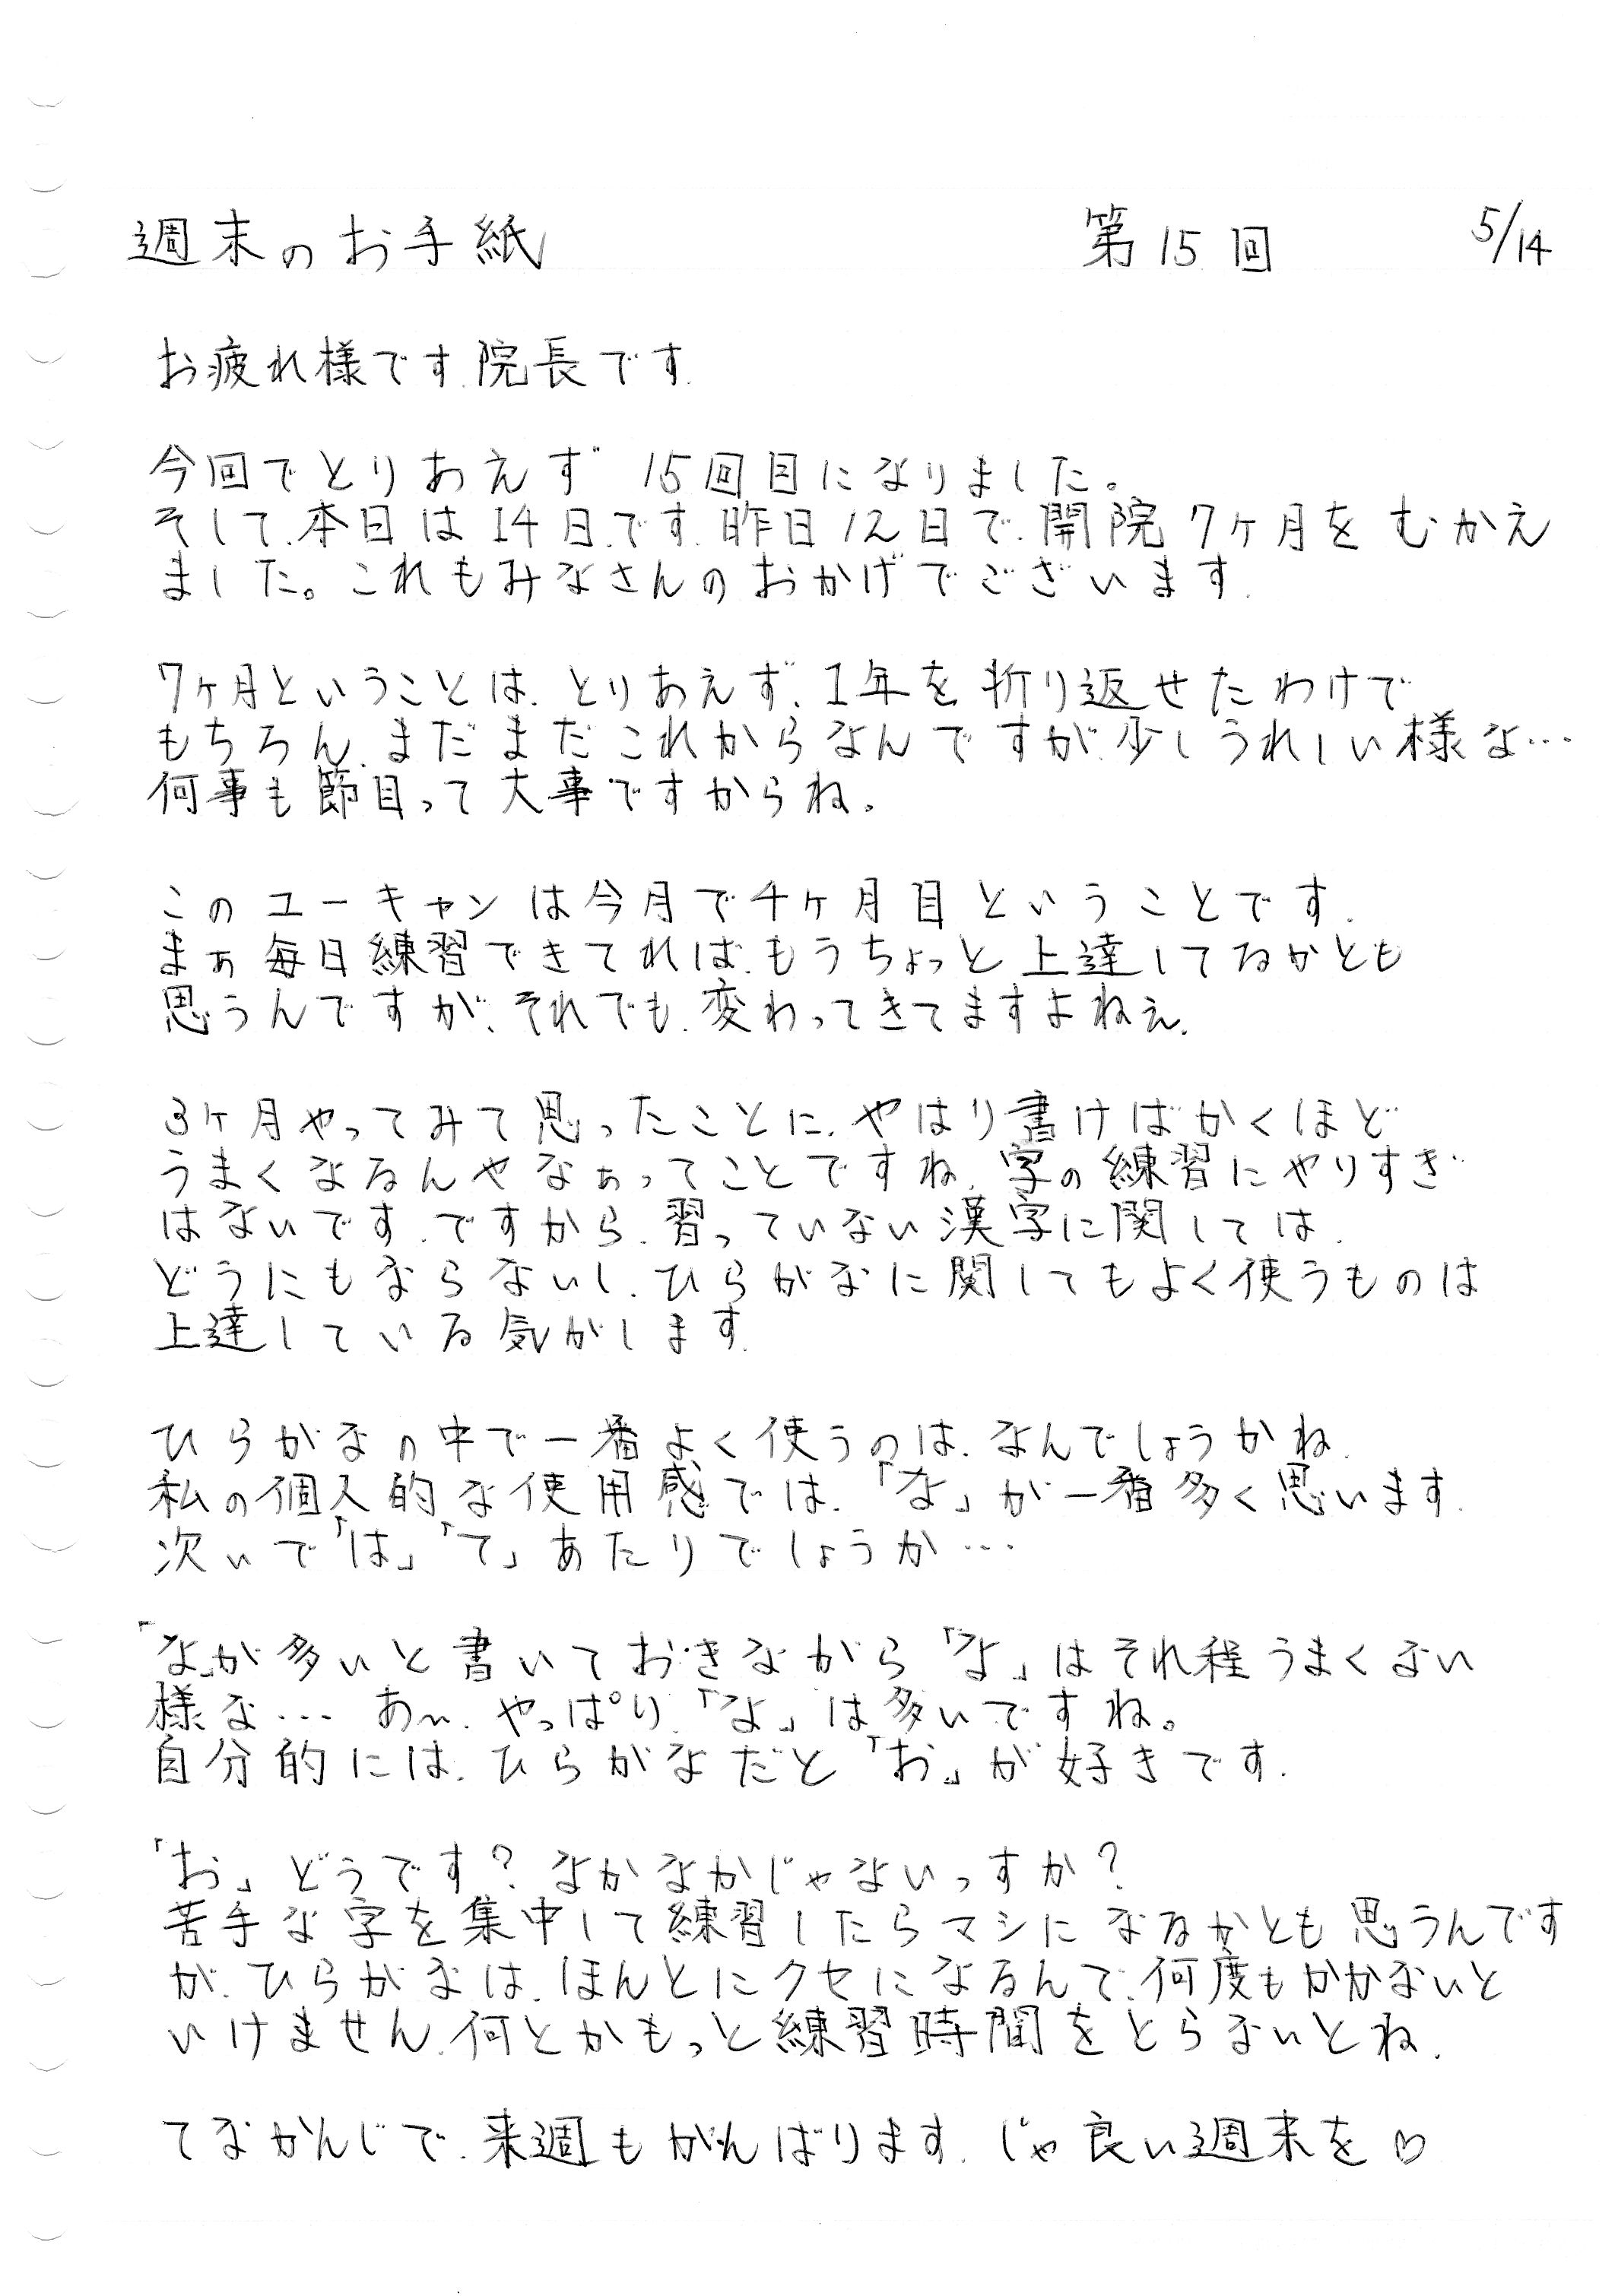 週末のお手紙 第15回 5/14
お疲れ様です.院長です.
今回でとりあえず 15回目になりました。
そして、本日は14日です.昨日12日で.開院7ヶ月をむかえ
ました。これもみなさんのおかげでございます.
7ヶ月ということは.とりあえず、1年を折り返せたわけで
もちろん.まだまだこれからなんですが.少しうれしい様な…
何事も節目って大事ですからね。
このユーキャンは今月で4ヶ月目ということです.
まぁ毎日練習できてれば.もうちょっと上達してるかとも
思うんですが、それでも.変わってきてますよねぇ.
3ヶ月やってみて思ったことに.やはり書けばかくほど
うまくなるんやなぁってことですね.字の練習にやりすぎ
はないです.ですから.習っていない漢字に関しては.
どうにもならないし.ひらがなに関してもよく使うものは
上達している気がします.
ひらがなの中で一番よく使うのは.なんでしょうかね.
私の個人的な使用感では.「な」が一番多く思います.
次いで「は」「て」あたりでしょうか…
「な」が多いと書いておきながら「な」はそれ程うまくない
様な… あ〜.やっぱり.「な」は多いですね。
自分的には.ひらがなだと「お」が好きです.
「お」どうです?なかなかじゃないっすか?
苦手な字を集中して練習したらマシになるかとも思うんです
が.ひらがなは.ほんとにクセになるんで.何度もかかないと
いけません.何とかもっと練習時間をとらないとね.
てなかんじで.来週もがんばります.じゃ良い週末を♡